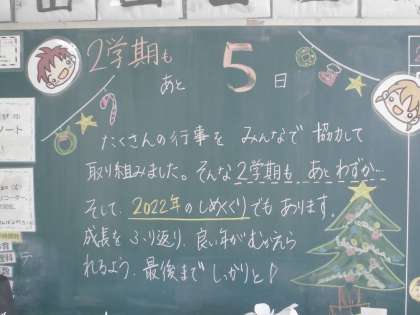 2学期も
あと 5 日
たくさんの行事を みんなで 協力して
取り組みました。そんな2学期も、あとわずか…
そして、2022年のしめくくりでもあります。
成長を ふり返り、良い年がむかえら
れるよう、最後まで しっかりと♪
ノート